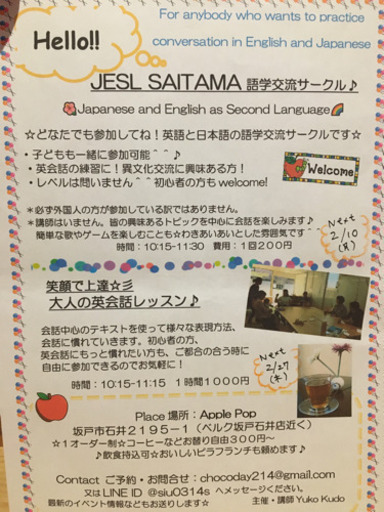 Hello!!
For anybody who wants to practice
conversation in English and Japanese
JESL SAITAMA 語学交流サークル♪
Japanese and English as Second Language
☆どなたでも参加してね！英語と日本語の語学交流サークルです☆
・子どもも一緒に参加可能^^♪
・英会話の練習に！異文化交流に興味ある方！
・レベルは問いません^^初心者の方も welcome!
Welcome
＊必ず外国人の方が参加している訳ではありません。
＊講師はいません。皆の興味あるトピックを中心に会話を楽しみます♪
簡単な歌やゲームを楽しむことも☆わきあいあいとした雰囲気です^^
時間：10:15-11:30　費用：1回200円
Next
2/10
(月)
笑顔で上達☆彡
大人の英会話レッスン♪
会話中心のテキストを使って様々な表現方法、
会話に慣れていきます。初心者の方、
英会話にもっと慣れたい方も、ご都合の合う時に
自由に参加できるのでお気軽に！
時間：10:15-11:15　１時間１０００円
Next
2/27
(木)
Place 場所：Apple Pop
坂戸市石井２１９５－１（ベルク坂戸石井店近く）
☆１オーダー制☆コーヒーなどお替り自由３００円～
♪飲食持込可☆おいしいピラフランチも頼めます♪
Contact ご予約・お問合せ：chocoday214@gmail.com
又は LINE ID @siu0314s へメッセージください。
最新のイベント情報などもお送りします☆　主催・講師 Yuko Kudo